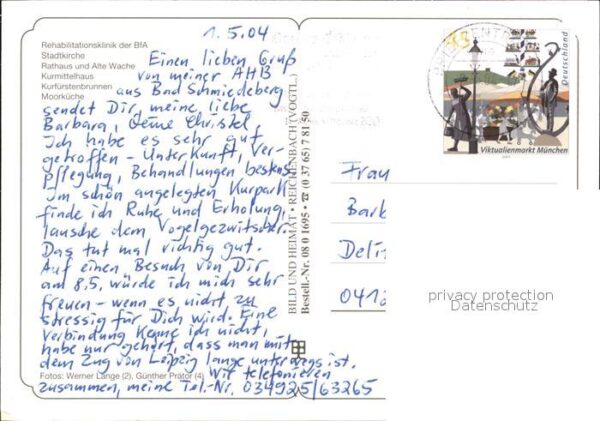 1.5.04
Rehabilitationsklinik der BfA
Stadtkirche
Rathaus und Alte Wache
Kurmittelhaus
Kurfürstenbrunnen
Moorküche
Einen lieben Gruß
von meiner AHB
aus Bad Schmiedeberg
sendet Dir, meine liebe
Barbara, Deine Christel.
Ich habe es sehr gut
getroffen - Unterkunft, Ver-
pflegung, Behandlungen bestens
Im schön angelegten Kurpark
finde ich Ruhe und Erholung,
lausche dem Vogelgezwitscher.
Das tut mal richtig gut.
Auf einen Besuch von Dir
am 8.5. würde ich mich sehr
freuen - wenn es nicht zu
stressig für Dich wird. Eine
Verbindung kenne ich nicht,
habe nur gehört, dass man mit
dem Zug von Leipzig lange unterwegs ist.
Wir telefonieren
zusammen, meine Tel.-Nr. 034925/63265
Fotos: Werner Lange (2), Günther Prätor (4)
BILD UND HEIMAT · REICHENBACH (VOGTL.)
Bestell.-Nr. 08 0 1695 · ☎ (0 37 65) 7 81 50
Deutschland
Viktualienmarkt München
Frau
Barb
Deli
041
privacy protection
Datenschutz